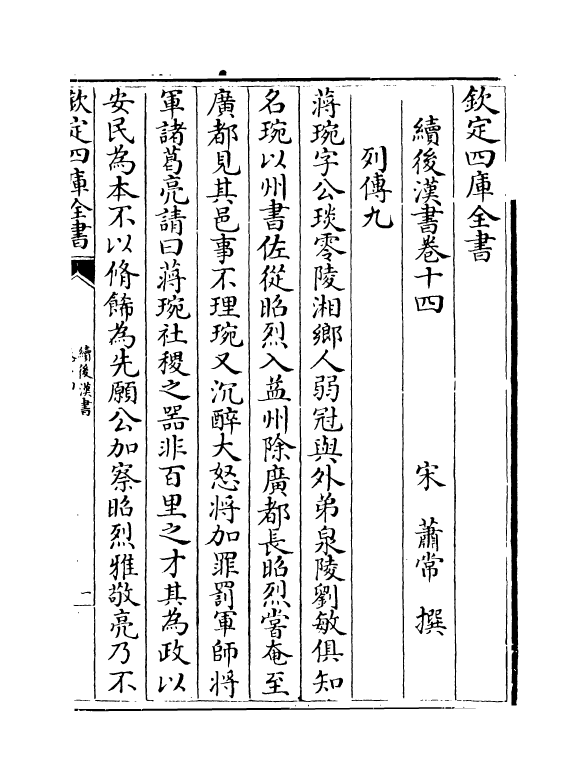 欽定四庫全書
續後漢書卷十四
宋 蕭常 撰
列傳九
蔣琬字公琰零陵湘鄉人弱冠與外弟泉陵劉敏俱知
名琬以州書佐從昭烈入益州除廣都長昭烈嘗奄至
廣都見其邑事不理琬又沉醉大怒將加罪罰軍師將
軍諸葛亮請曰蔣琬社稷之器非百里之才其為政以
安民為本不以脩飾為先願公加察昭烈雅敬亮乃不
欽定四庫全書
續後漢書
一